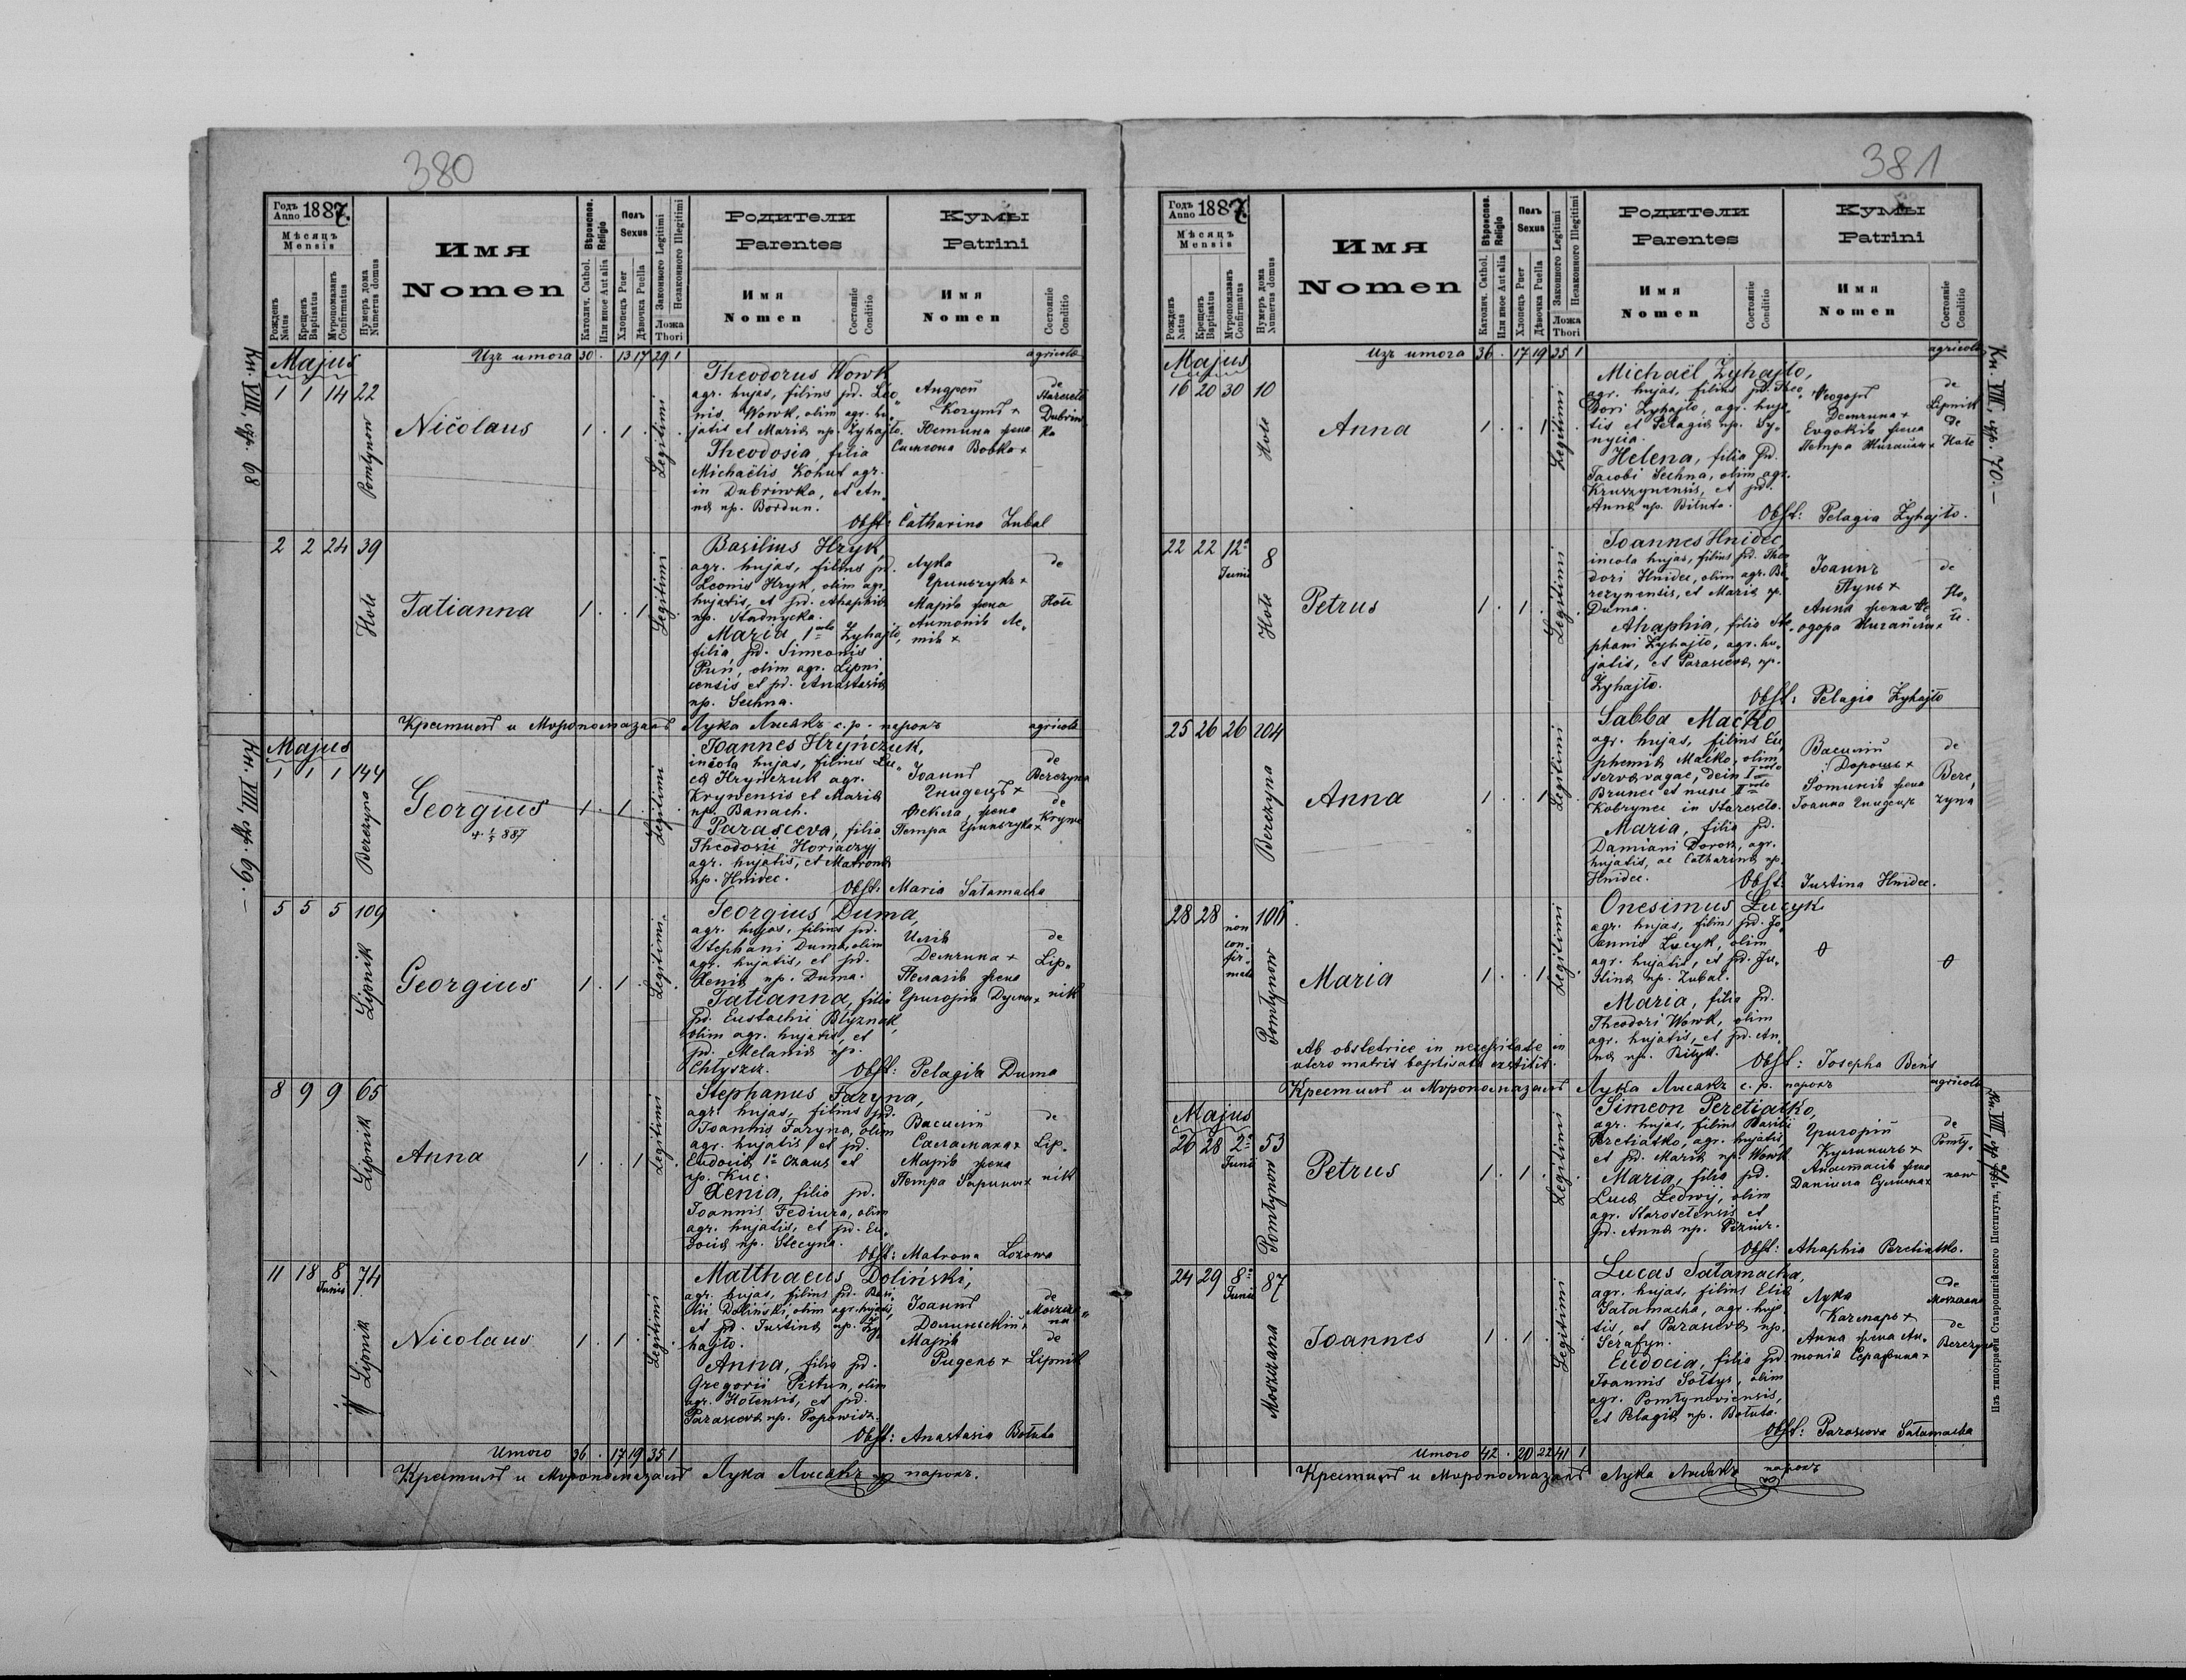 380
Годъ Anno 1887.
Мѣсяцъ
Mensis
Рожденъ Natus
Крещенъ Baptisatus
Мѵропомазанъ Confirmatus
Нумеръ дома Numerus domus
Имя
Nomen
Католич. Cathol. Вѣроиспов. Religio
Или иное Aut alia
Полъ
Sexus
Хлопецъ Puer
Дѣвочка Puella
Законного Legitimi
Незаконного Illegitimi
Ложа
Thori
Родители
Parentes
Имя
Nomen
Состояніе
Conditio
Кумы
Patrini
Имя
Nomen
Состояніе
Conditio
Кн. VIII. стр. 68
Majus
Изъ итога 30 . 13 17 29 1
agricolae
1 1 14 22
Pomłynow
Nicolaus
1 . 1 .
Legitimi
Theodorus Wowk
agr. hujas, filius pd. Leo„
nis Wowk, olim agr. hu„
jatis et Mariae np. Żyhajło.
Theodosia, filia
Michaëlis Kohut agr.
in Dubriwka, et An„
nae np. Bordun.
Андрей
Когутъ +
Юстина жена
Симеона Вовка +
de
Staresело
Dubriw
ka
Obst: Catharina Zubal
2 2 24 39
Hole
Tatianna
1 . . 1
Legitimi
Basilius Hryk
agr. hujas, filius pd.
Leonis Hryk, olim agr.
hujatis, et pd. Ahaphiae
np. Stadnycka.
Maria, 1mo Żyhajło,
filia pd. Simeonis
Puń, olim agr. Lipni
censis et pd. Anastasiae
np. Sechna.
Лука
Гриньчукъ +
Марія жена
Антонія Ле„
тів +
de
Hole
Крестилъ и Мѵропомазалъ Лука Лисакъ с. р. парохъ
agricolae
Кн. VIII. стр. 69.
Majus
1 1 1 144
Berezyna
Georgius
1 . 1 .
Legitimi
Joannes Hryńczuk,
incola hujas, filius Lu„
cae Hryńczuk agr.
Krywensis et Mariae
np. Banach.
Parasceva, filia
Theodorii Horiaczyj
agr. hujatis, et Matronae
np. Hnidec.
Іоаннъ
Гнидецъ +
Текля жена
Петра Гриньчука +
de
Berezyna
de
Krywe
Obst. Maria Sałamacha
5 5 5 109
Lipnik
Georgius
1 . 1 .
Legitimi
Georgius Duma,
agr. hujas, filius pd.
Stephani Duma, olim
agr. hujatis, et pd.
Xeniae np. Duma.
Tatianna, filia
pd. Eustachii Blyznak,
olim agr. hujatis, et
pd. Melaniae np.
Chłyszcz.
Илія
Демчина +
Пелагія жена
Григорія Дума +
de
Lip„
nik
Obst: Pelagia Duma
8 9 9 65
Lipnik
Anna
1 . . 1
Legitimi
Stephanus Faryna,
agr. hujas, filius pd.
Joannis Faryna, olim
agr. hujatis et pd.
Eudociae 1o Czaus et
np. Kuc.
Xenia, filia pd.
Joannis Fediura, olim
agr. hujatis, et pd. Eu„
dociae np. Stecyna.
Василій
Саламаха +
Марія жена
Петра Фарины +
de
Lip„
nik
Obst: Matrona Łozowa
11 18 8 Junii 74
Lipnik
Nicolaus
1 . 1 .
Legitimi
Matthaeus Doliński,
agr. hujas, filius pd. Basi„
lii Doliński, olim agr. hujatis,
et pd. Justinae np. Ży„
hajło.
Anna, filia pd.
Gregorii Pistun, olim
agr. Hotensis, et pd.
Parascevae np. Popowicz.
Іоаннъ
Долиньскій +
Марія
Ридель +
de
Moszcza„
na
de
Lipnik
Obst: Anastasia Bołuta
Итого 36 . 17 19 35 1
Крестилъ и Мѵропомазалъ Лука Лисакъ парохъ.
381
Годъ Anno 1887.
Мѣсяцъ
Mensis
Рожденъ Natus
Крещенъ Baptisatus
Мѵропомазанъ Confirmatus
Нумеръ дома Numerus domus
Имя
Nomen
Католич. Cathol. Вѣроиспов. Religio
Или иное Aut alia
Полъ
Sexus
Хлопецъ Puer
Дѣвочка Puella
Законного Legitimi
Незаконного Illegitimi
Ложа
Thori
Родители
Parentes
Имя
Nomen
Состояніе
Conditio
Кумы
Patrini
Имя
Nomen
Состояніе
Conditio
Кн. VIII, стр. 70.—
Majus
Изъ итога 36 . 17 19 35 1
agricolae
16 20 30 10
Hole
Anna
1 . . 1
Legitimi
Michaël Żyhajło,
agr. hujas, filius pd. Theo„
dori Żyhajło, agr. huja„
tis et Pelagiae np. Sy„
nycia.
Helena, filia pd.
Jacobi Sechna, olim agr.
Kruszynensis, et pd.
Annae np. Biłuta.
Ѳеодоръ
Демчина +
Евдокія жена
Петра Жигайла +
de
Lipnik
de
Hole
Obst: Pelagia Żyhajło.
22 22 12a Junii 8
Hole
Petrus
1 . 1 .
Legitimi
Joannes Hnidec,
incola hujas, filius pd. Theo
dori Hnidec, olim agr. Be„
rezynensis, et Mariae np.
Duma.
Ahaphia, filia Ste„
phani Żyhajło, agr. hu„
jatis, et Parascevae np.
Żyhajło.
Іоаннъ
Пунь +
Анна жена Ѳе
одора Жигайла +
de
Ho„
le.
Obst: Pelagia Żyhajło
25 26 26 204
Berezyna
Anna
1 . . 1
Legitimi
Sabba Maćko
agr. hujas, filius Eu„
phemiae Maćko, olim
servae vagae, dein I voto
Brunec et nunc II voto
Kobrynec in Stareseło.
Maria, filia pd.
Damiani Dorosz, agr.
hujatis, ac Catharinae np.
Hnidec.
Василій
Дорошъ +
Іоанна Гнидецъ
de
Bere„
zyna
Obst: Justina Hnidec.
28 28 non con„ fir„ mata 106
Pomłynow
Maria
1 . . 1
Legitimi
Onesimus Łucyk
agr. hujas, filius pd. Jo„
annis Łucyk, olim
agr. hujatis, et pd. Ju„
stinae np. Zubal.
Maria, filia pd.
Theodori Wowk, olim
agr. hujatis, et pd. An„
nae np. Biłyk.
Obst: Josepha Beńs
Ab obstetrice in necessitate in
utero matris baptisata extitit.
Крестилъ и Мѵропомазалъ Лука Лисакъ с. р. парохъ
agricolae
Кн. VIII, стр. 71
Majus
26 28 2a Junii 53
Pomłynow
Petrus
1 . 1 .
Legitimi
Simeon Peretiatko,
agr. hujas, filius Basilii
Peretiatko, agr. hujatis
et pd. Mariae np. Wowk
Maria, filia pd.
Lucae Ledwij, olim
agr. Starosetensis et
pd. Annae np.
Григорій
Анастасія жена
Даніила
de
Pomły„
now
Obst: Ahaphia Peretiatko.
24 29 8a Junii 87
Moszczana
Joannes
1 . 1 .
Legitimi
Lucas Sałamacha,
agr. hujas, filius Eliae
Sałamacha, agr. huja„
tis, et Parascevae np.
Serafyn.
Eudocia, filia pd.
Joannis Sołtys, olim
agr. Pomłynoviensis,
et Pelagiae np. Bołuta.
Лука
Качмаръ +
Анна жена Ан„
тонія Серафина +
de
Moszczana
de
Berezyna
Obst: Parasceva Sałamacha
Итого 42 . 20 22 41 1
Крестилъ и Мѵропомазалъ Лука Лисакъ парохъ
Изъ типографіи Ставропигійского Института,